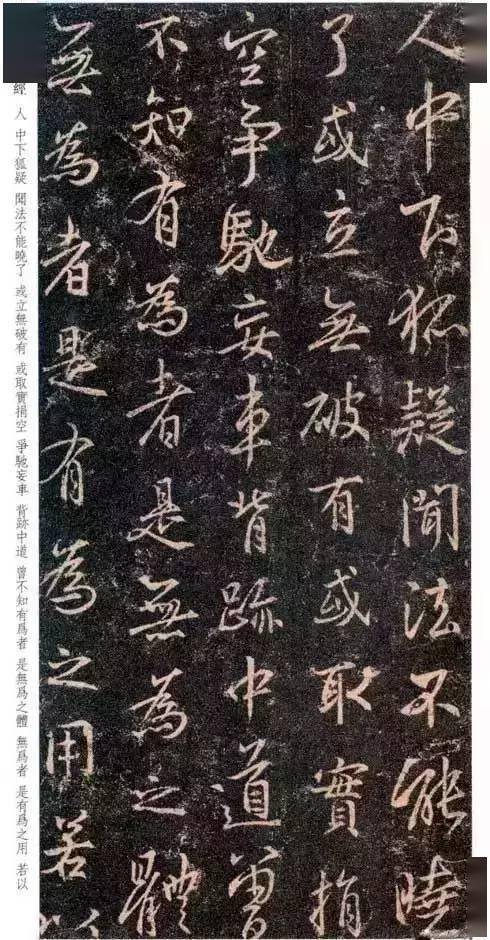 人中下狐疑聞法不能曉
了或立無破有或取實捐
空爭馳妄車背跡中道曾
不知有為者是無為之體
無為者是有為之用若以
經 人中下狐疑 聞法不能曉了 或立無破有 或取實捐空 爭馳妄車 背跡中道 曾不知有爲者 是無爲之體 無爲者 是有爲之用 若以